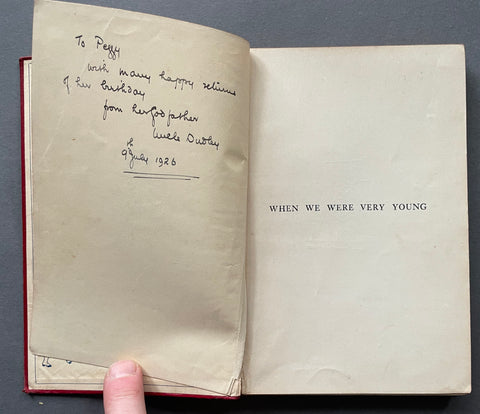 To Peggy
with many happy returns
of her birthday
from her Godfather
Uncle Dudley
9th July 1926
WHEN WE WERE VERY YOUNG